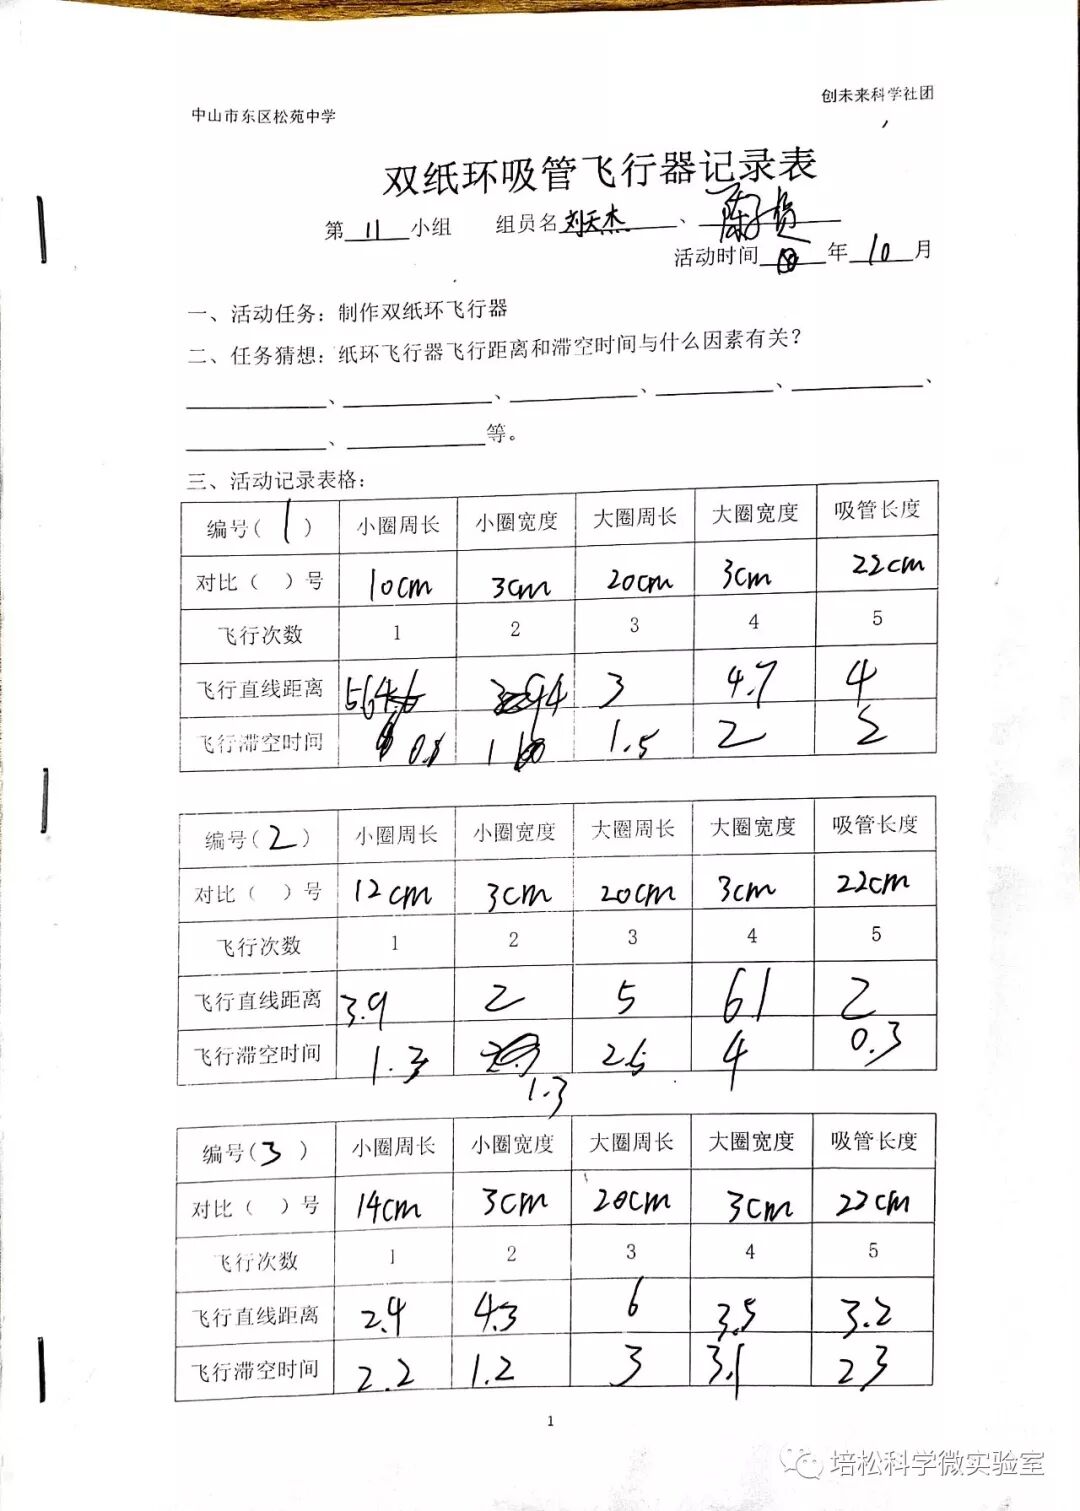 中山市东区松苑中学
创未来科学社团
双纸环吸管飞行器记录表
第 11 小组 组员名 刘天杰 、 陈子
活动时间 年 10 月
一、活动任务：制作双纸环飞行器
二、任务猜想：纸环飞行器飞行距离和滞空时间与什么因素有关？
、 、 、 、 、
、 等。
三、活动记录表格：
编号( 1 ) 小圈周长 小圈宽度 大圈周长 大圈宽度 吸管长度
对比（ ）号 10cm 3cm 20cm 3cm 22cm
飞行次数 1 2 3 4 5
飞行直线距离 3 4.7 4
飞行滞空时间 0.8 1 1.5 2 2
编号( 2 ) 小圈周长 小圈宽度 大圈周长 大圈宽度 吸管长度
对比（ ）号 12cm 3cm 20cm 3cm 22cm
飞行次数 1 2 3 4 5
飞行直线距离 3.9 2 5 6.1 2
飞行滞空时间 1.3 1.3 2.5 4 0.3
编号( 3 ) 小圈周长 小圈宽度 大圈周长 大圈宽度 吸管长度
对比（ ）号 14cm 3cm 20cm 3cm 22cm
飞行次数 1 2 3 4 5
飞行直线距离 2.4 4.3 6 3.5 3.2
飞行滞空时间 2.2 1.2 3 3.1 2.3
1
培松科学微实验室